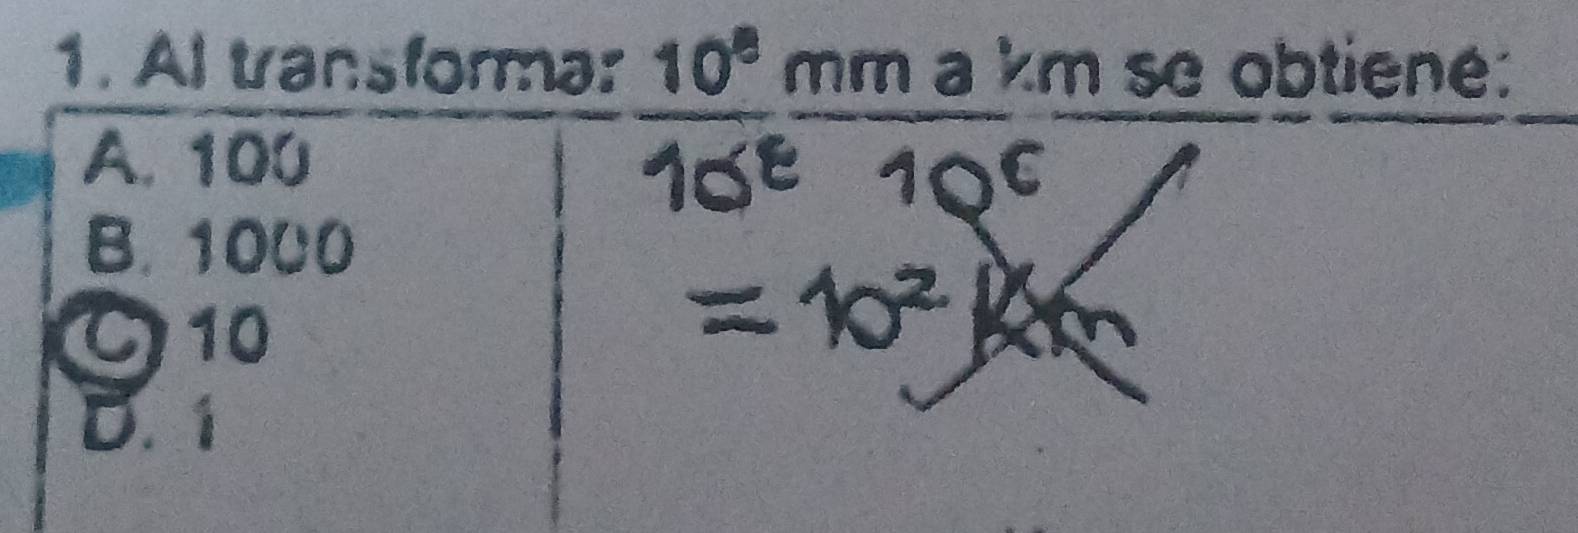 1. Al transformar 10⁸ mm a km se obtiene:
A. 100
B. 1000
C 10
D. 1
10⁸ 10⁶
= 10² Km